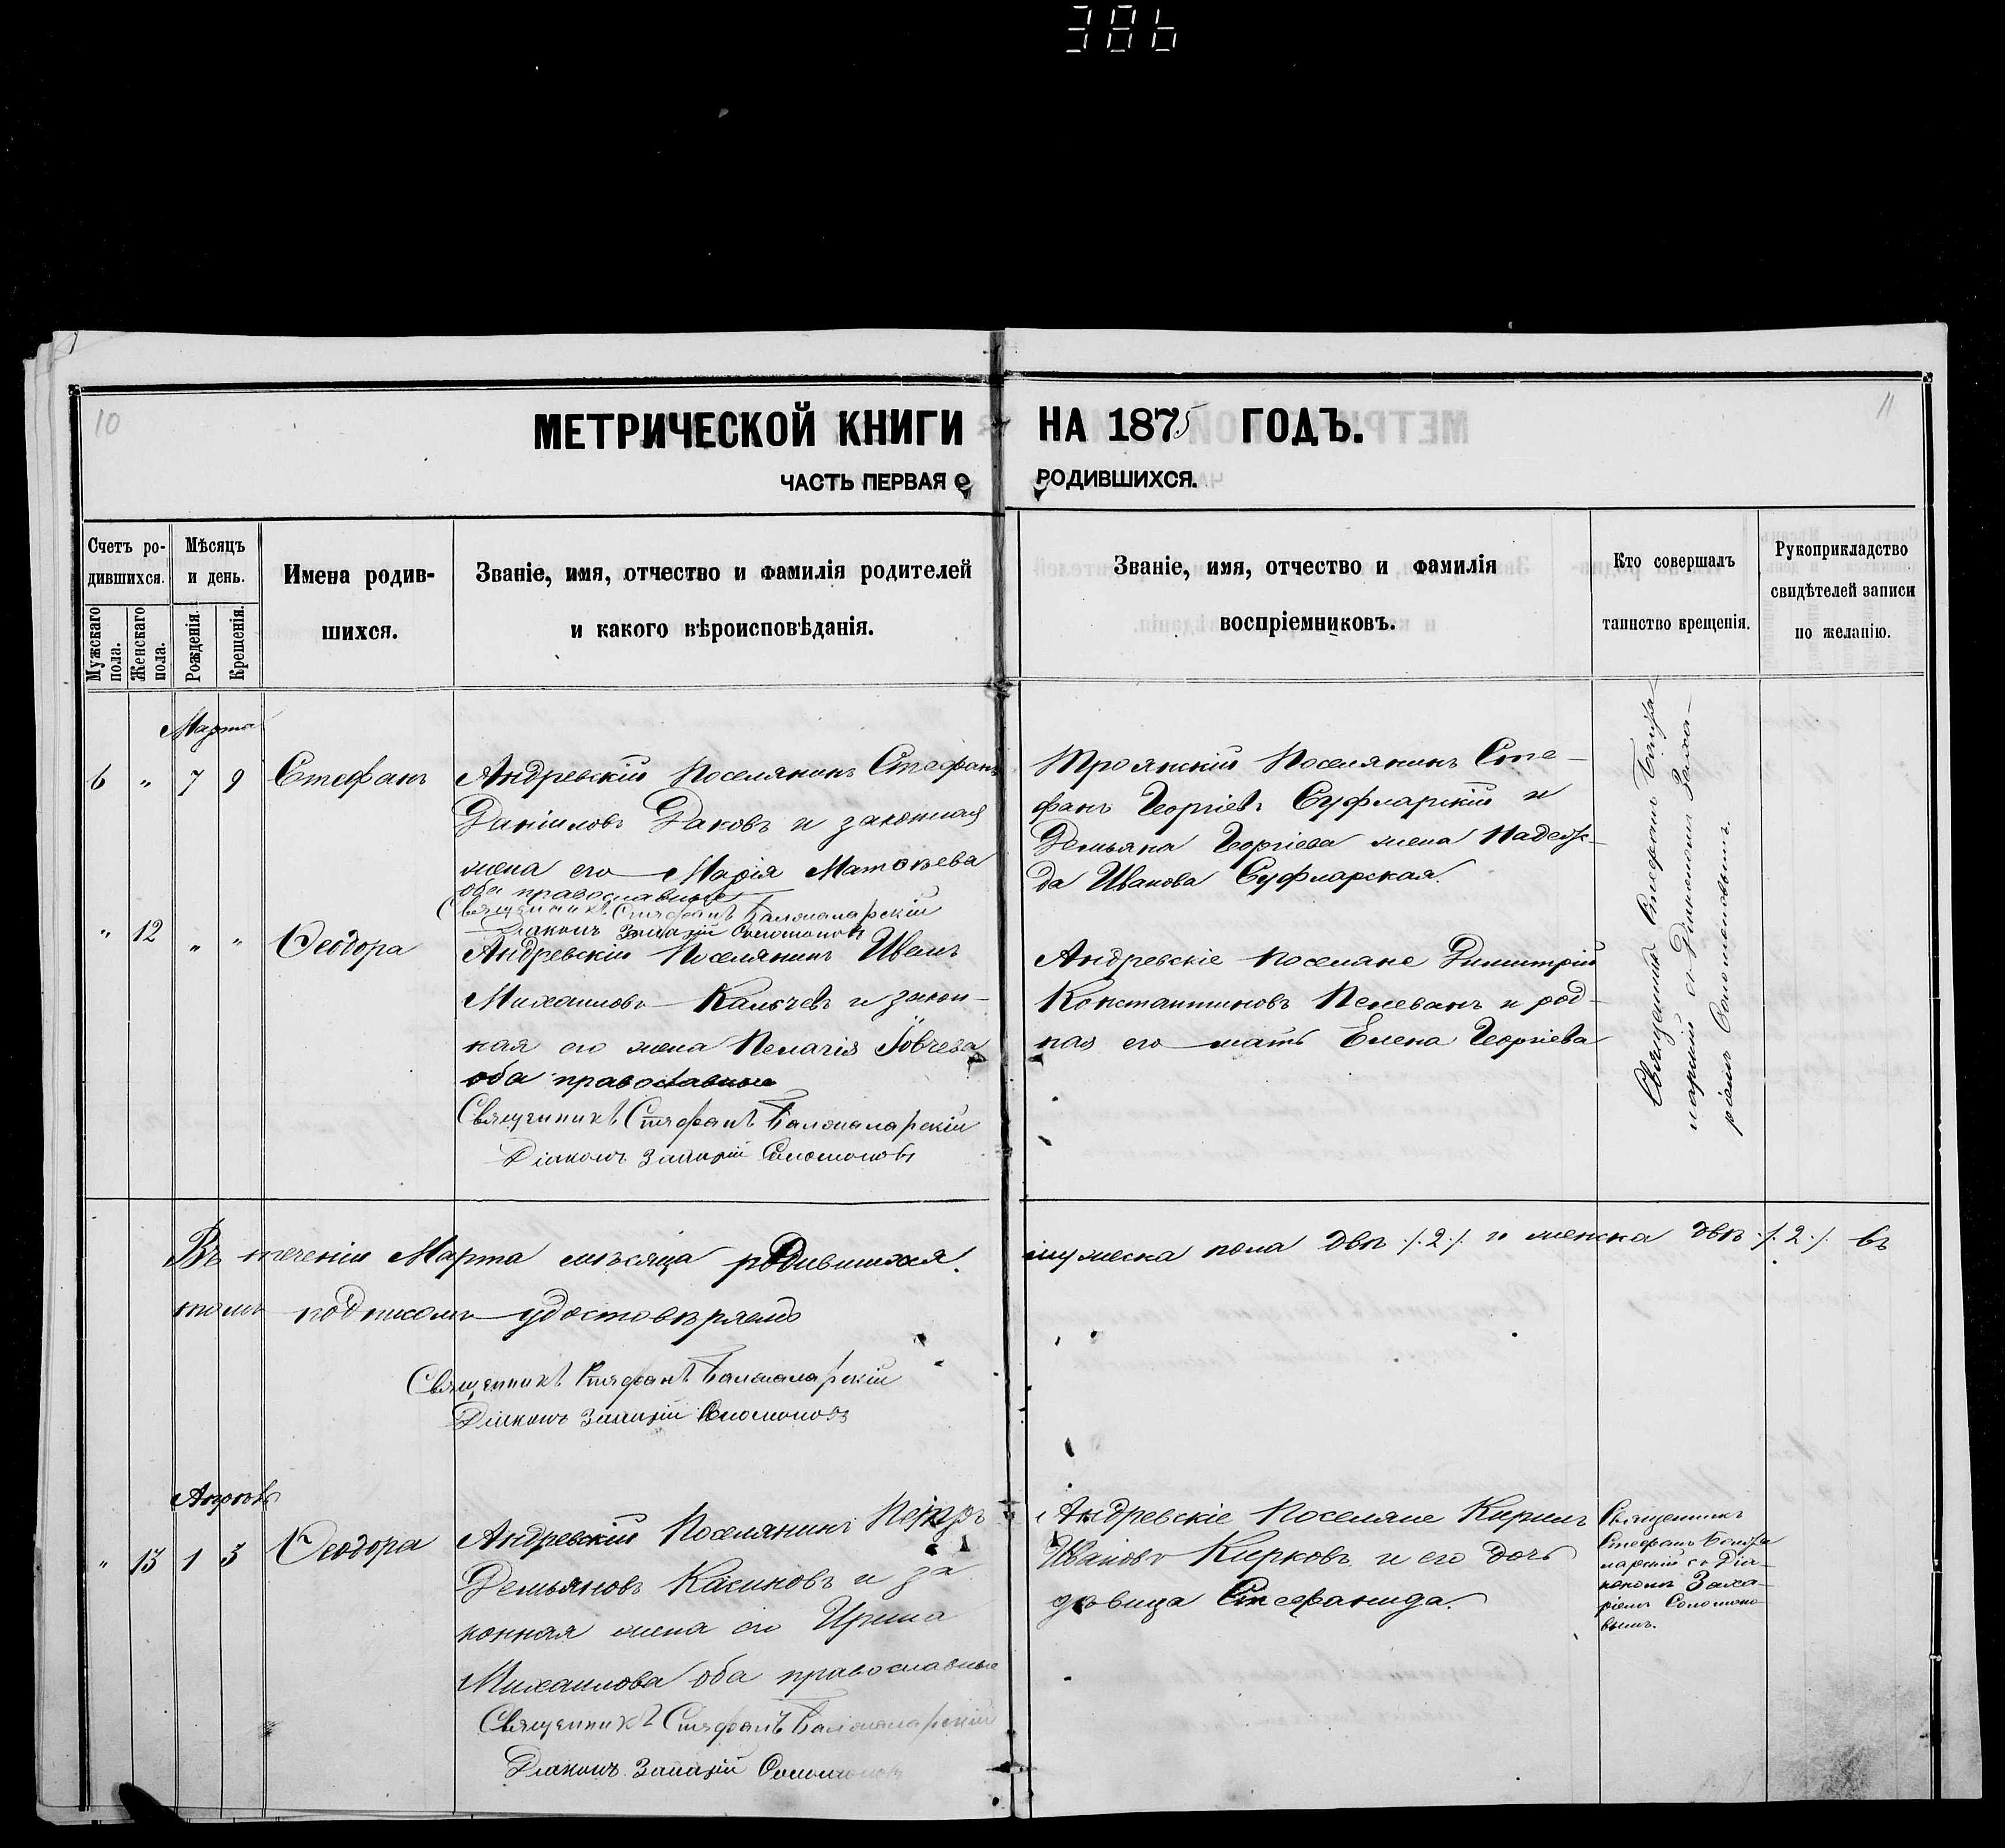 386
10
МЕТРИЧЕСКОЙ КНИГИ
НА 1875 ГОДЪ.
11
ЧАСТЬ ПЕРВАЯ О
РОДИВШИХСЯ.
Счетъ ро-
дившихся.
Мужскаго пола.
Женскаго пола.
Мѣсяцъ
и день.
Рожденія.
Крещенія.
Имена родив-
шихся.
Званіе, имя, отчество и фамилія родителей
и какого вѣроисповѣданія.
Званіе, имя, отчество и фамилія
воспріемниковъ.
Кто совершалъ
таинство крещенія.
Рукоприкладство
свидѣтелей записи
по желанію.
Марта
6 " 7 9 Стефанъ
Андревскій Поселянинъ Стефанъ
Даніиловъ Даковъ и законная
жена его Марія Матѳѣева
оба православные
Священникъ Стефанъ
Діаконъ Захарій Соломоновъ
Троянскій Поселянинъ Сте-
фанъ Георгіевъ Суфларскій и
Демьяна Георгіева жена Надеж-
да Иванова Суфларская.
Священникъ Стефанъ
ларскій съ Діакономъ Заха-
ріемъ Соломоновымъ.
" 12 " " Ѳеодора
Андревскій Поселянинъ Иванъ
Михаиловъ Калчевъ и закон-
ная его жена Пелагія
оба православные
Священникъ Стефанъ
Діаконъ Захарій Соломоновъ
Андревскіе поселяне Димитрій
Константиновъ Пелеванъ и род-
ная его мать Елена Георгіева
Въ теченіи Марта мѣсяца родившихся
мужеска пола двѣ ./.2./. и женска двѣ ./.2./. въ
томъ подписомъ удостовѣряемъ
Священникъ Стефанъ
Діаконъ Захарій Соломоновъ
Апрѣль
" 13 1 3 Ѳеодора
Андревскій Поселянинъ Петръ
Демьяновъ Касимовъ и за
конная жена его Ирина
Михаилова оба православные
Священникъ Стефанъ
Діаконъ Захарій Соломоновъ
Андревскіе Поселяне Кирилъ
Ивановъ Кирковъ и его дочь
дѣвица Стефанида.
Священникъ
Стефанъ
ларскій съ Діа-
кономъ Заха-
ріемъ Соломоно-
вымъ.